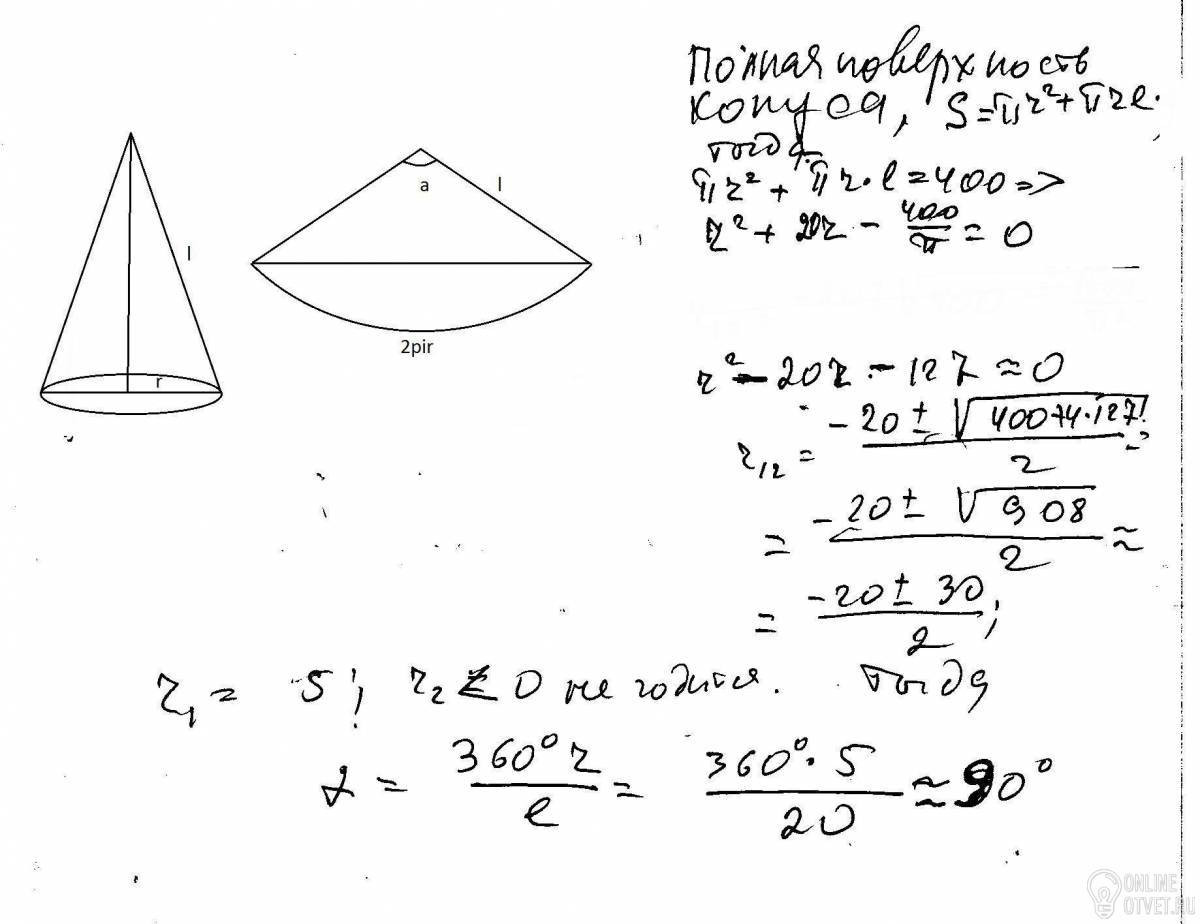 Полная поверхность
конуса, S=πr²+πrl.
тогда
πr²+πr·l=400=>
r²+20r-400/π=0
r²-20r-127≈0
r₁₂=(-20±√(400+4·127))/2=
=(-20±√908)/2≈
=(-20±30)/2;
r₁=5; r₂<0 не годится. тогда
α=360°r/l=360°·5/20≈90°
l
r
a
l
2pir
ONLINE
OTVET.RU